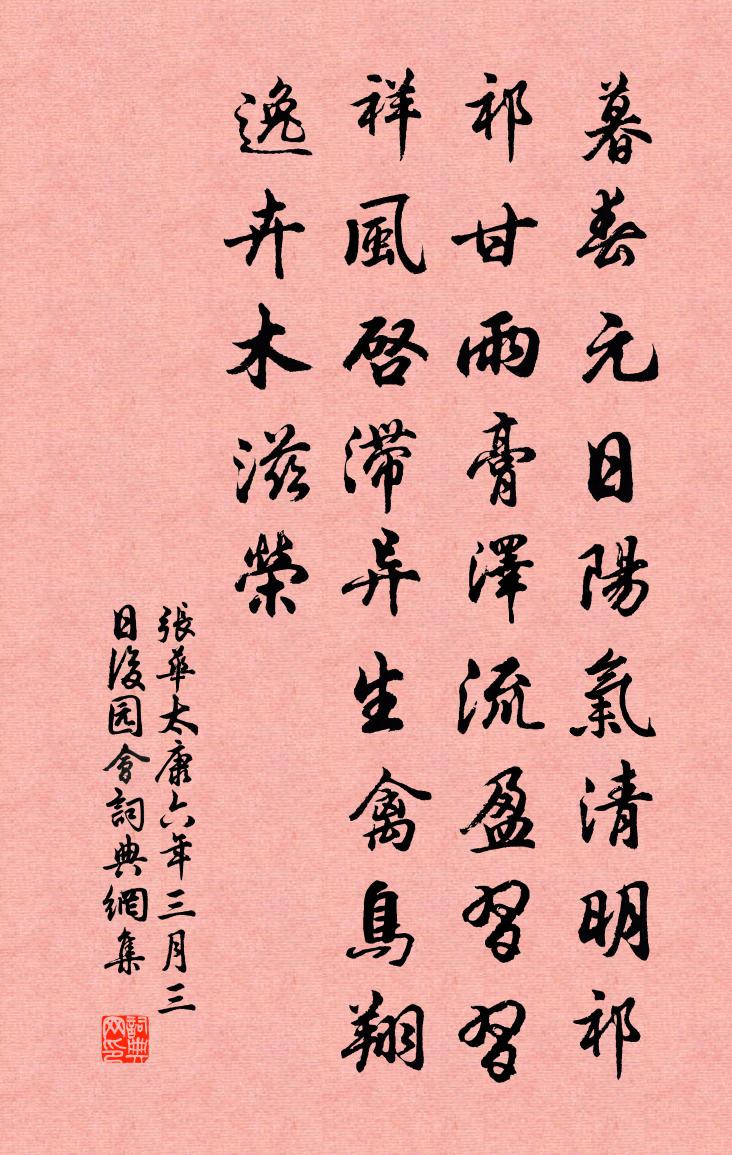 暮春元日陽氣清明祁
祁甘雨膏澤流盈習習
祥風啓滯异生禽鳥翔
逸卉木滋榮
張華太康六年三月三
日後园會詞典網集
詞典网印